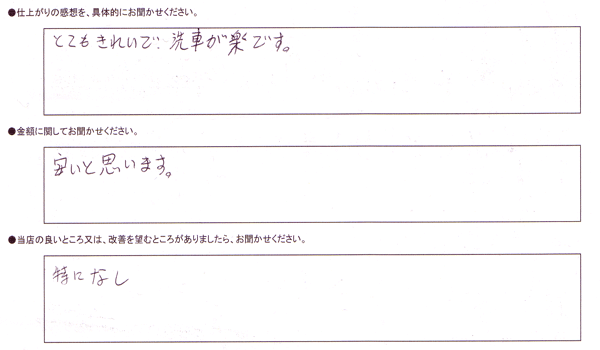 ●仕上がりの感想を、具体的にお聞かせください。
とてもきれいで、洗車が楽です。
●金額に関してお聞かせください。
安いと思います。
●当店の良いところ又は、改善を望むところがありましたら、お聞かせください。
特になし